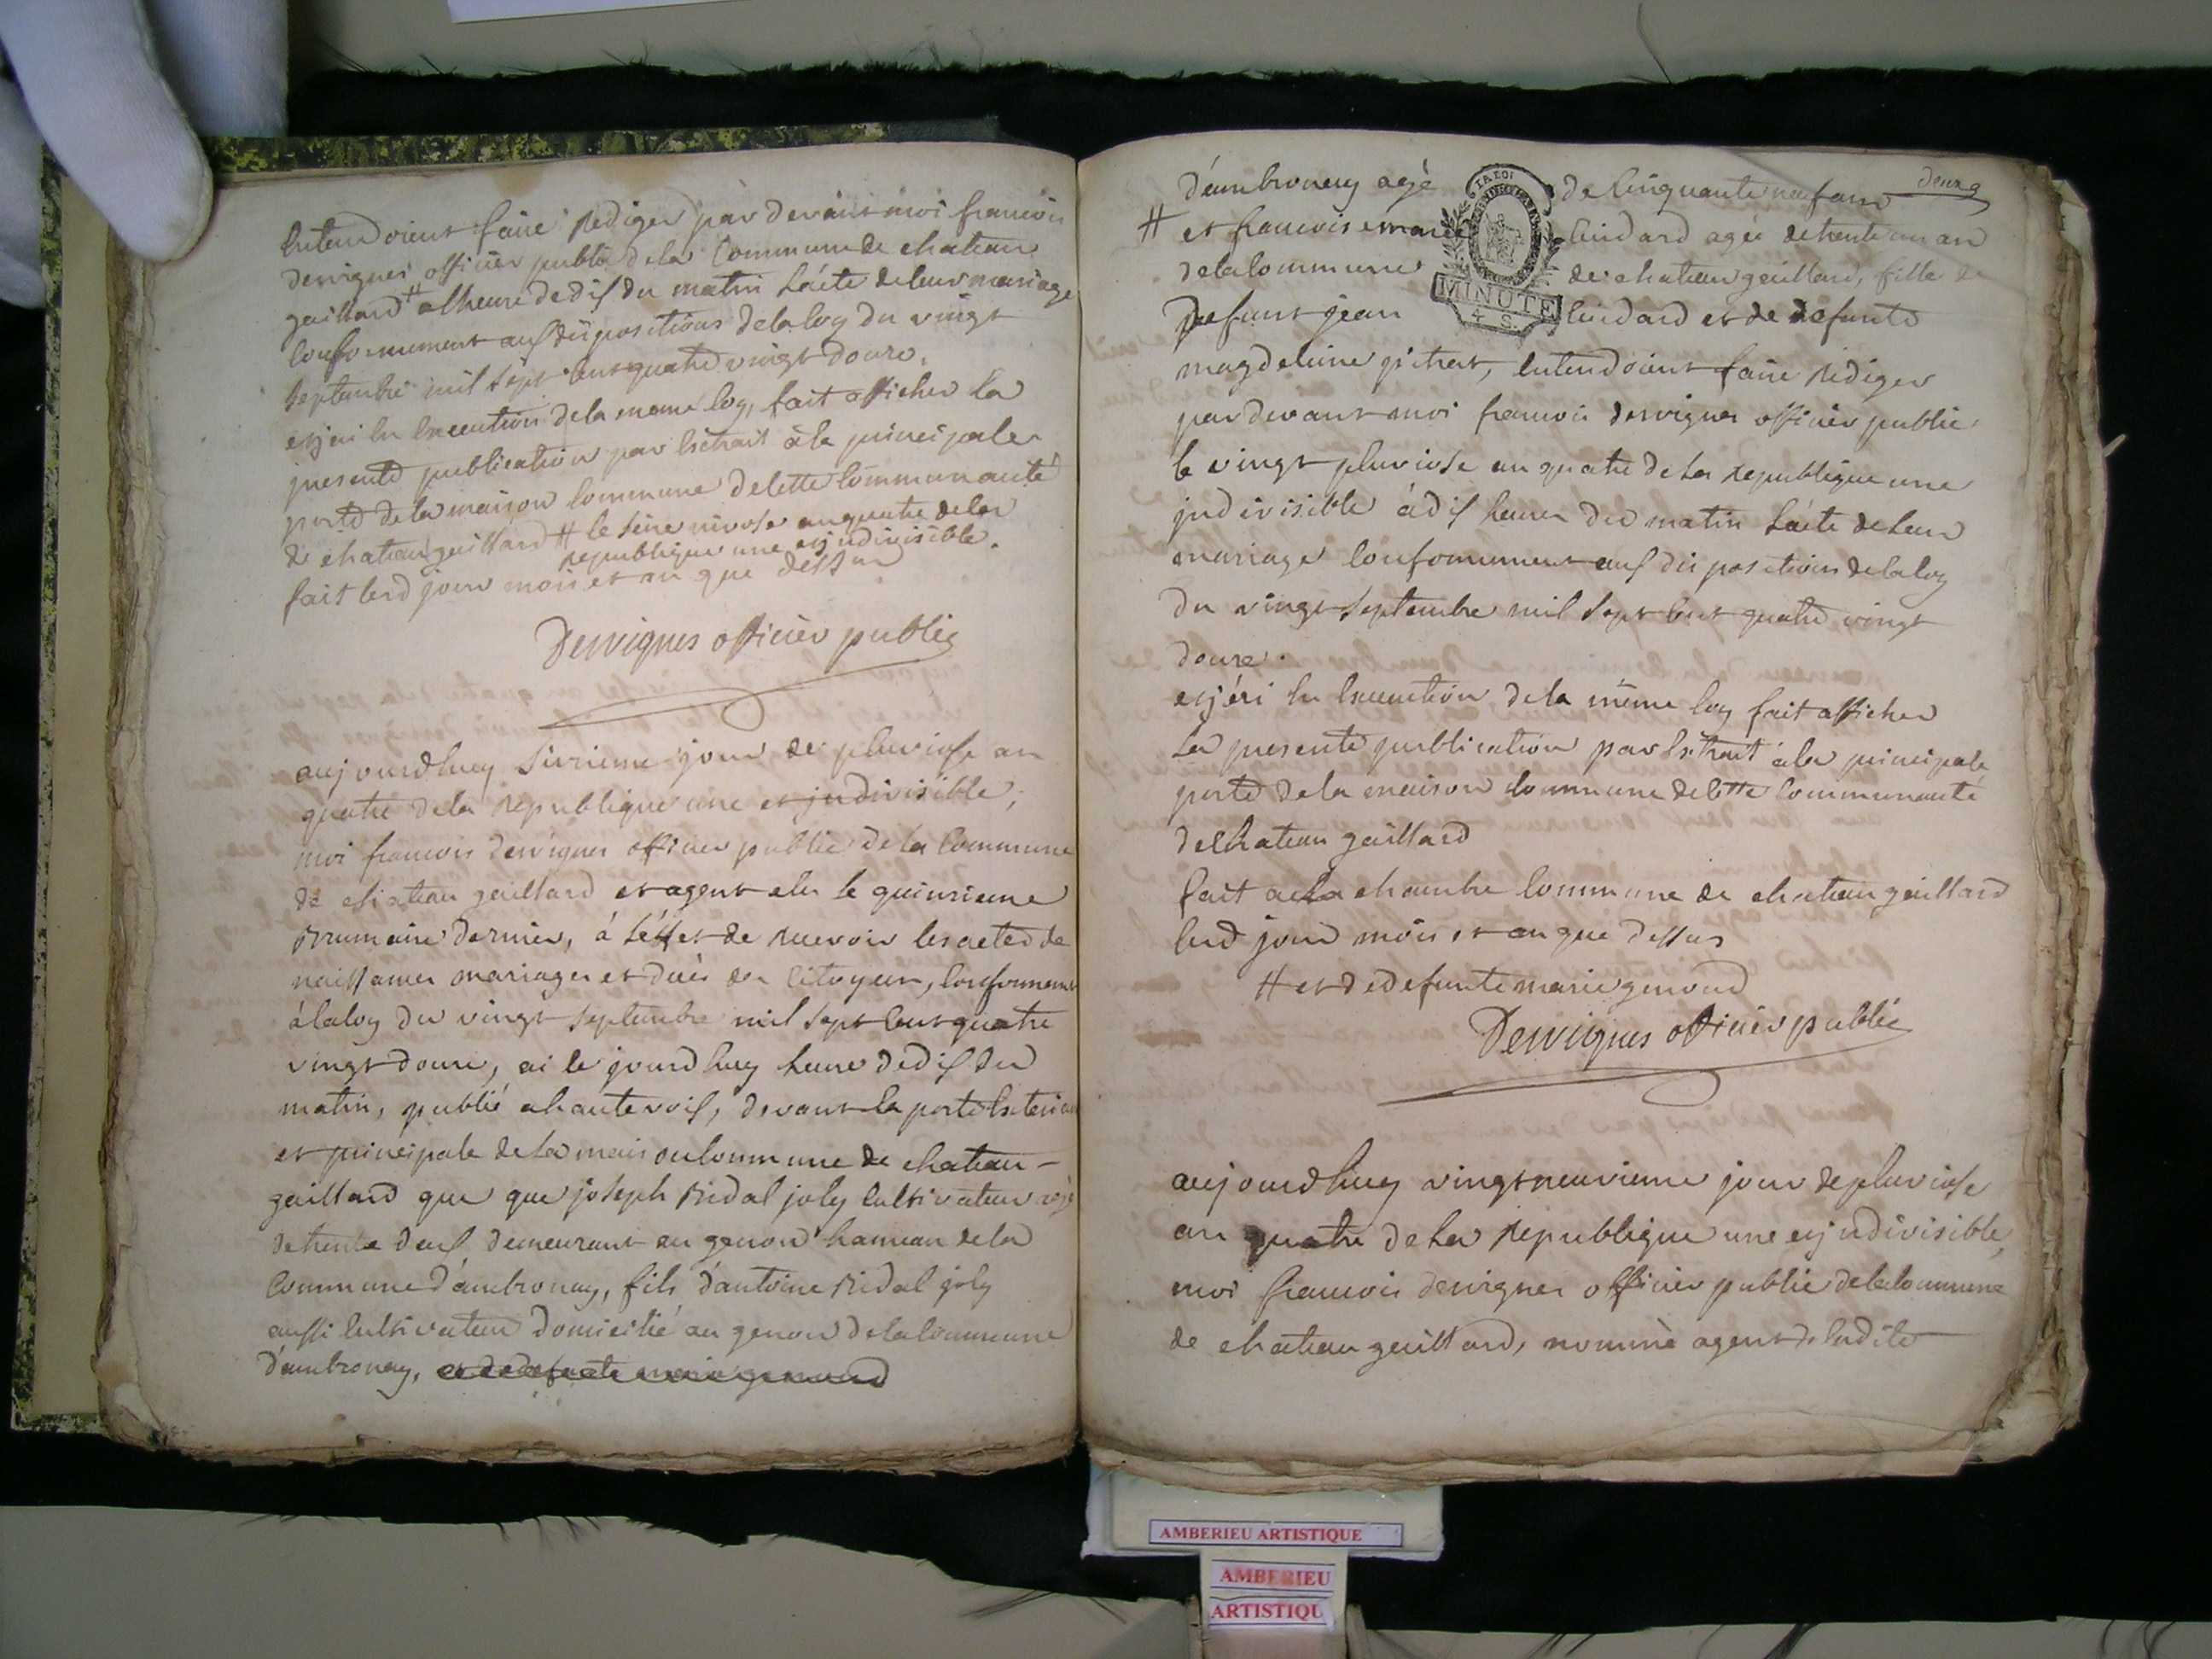 entendoient faire rediger par devant moi francois
desvignes officier public de la Commune de chateau
gaillard # alheure de dix du matin lácte de leur mariage
conformement aux dispositions de la loy du vingt
septembre mil sept cent quatre vingt douze.
et j'ai en execution de la meme loy, fait afficher la
presente publication par Extrait à la principale
porte de la maison commune de cette communauté
de chateau gaillard # le seize nivose an quatre de la
republique une et jndivisible.
fait lesd jour mois et an que dessus
Desvignes officier public
aujourdhuy sixieme jour de pluviose an
quatre de la republique une et jndivisible,
moi francois desvignes officier public de la Commune
de chateau gaillard et agent elu le quinzieme
Brumaire dernier, á l'éffet de recevoir les actes de
naissances mariages et décès des citoyens, conformement
á la loy du vingt septembre mil sept cent quatre
vingt douze, ai le jourdhuy heure de dix du
matin, publié a haute voix, devant la porte Exterieure
et principale de la maison commune de chateau-
gaillard que que joseph Bidal joly cultivateur agé
de trente deux demeurant au genoud hameau de la
Commune d'ambronay, fils d'antoine Bidal joly
aussi cultivateur domicilié au genoud de la commune
d'ambronay, et de defunte marie genoud
deux 9
d'ambronay agé de cinquante neuf ans
# et francoise marie cuidard agée de trente un an
de la commune de chateau gaillard, fille de
defunt jean cuidard et de defunte
LA LOI
MINUTE
4 S.
magdeleine pitrat, entendoient faire rediger
par devant moi francois desvignes officier public
le vingt pluviose an quatre de la republique une
jndivisible á dix heures du matin lácte de leur
mariage conformement aux dispositions de la loy
du vingt septembre mil sept cent quatre vingt
douze.
et j'ai en Execution de la même loy fait afficher
la presente publication par Extrait á la principale
porte de la maison commune de cette communauté
de Chateau gaillard
fait a la chambre commune de chateau gaillard
lesd jour mois et an que dessus
# et de defunte marie genoud
Desvignes officier public
aujourdhuy vingt neuvieme jour de pluviose
an quatre de la republique une et jndivisible,
moi francois desvignes officier public de la commune
de chateau gaillard, nommé agent de ladite
AMBERIEU ARTISTIQUE
AMBERIEU
ARTISTIQU